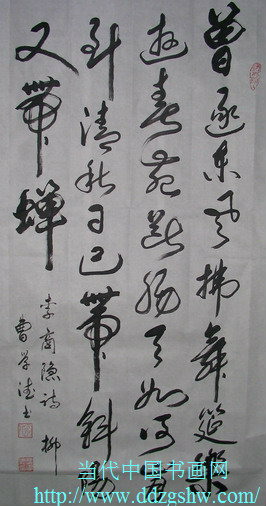 曾逐东风拂舞筵樂
游春苑断肠天如何肯
到清秋日已帶斜陽
又帶蝉
李商隐诗 柳
曹学
当代中国书画网
http://www.ddzgshw.com/